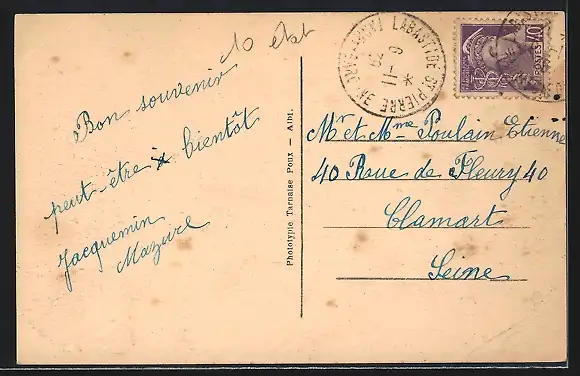 10 état
Bon souvenir
peut-être à bientôt
Jacquemin
Mazure
Phototypie Tarnaise Poux — Albi.
LABASTIDE-ST-PIERRE
TARN-ET-GARONNE
9 -11
POSTES 40
Mr et Mme Poulain Etienne
40 Rue de Fleury 40
Clamart
Seine